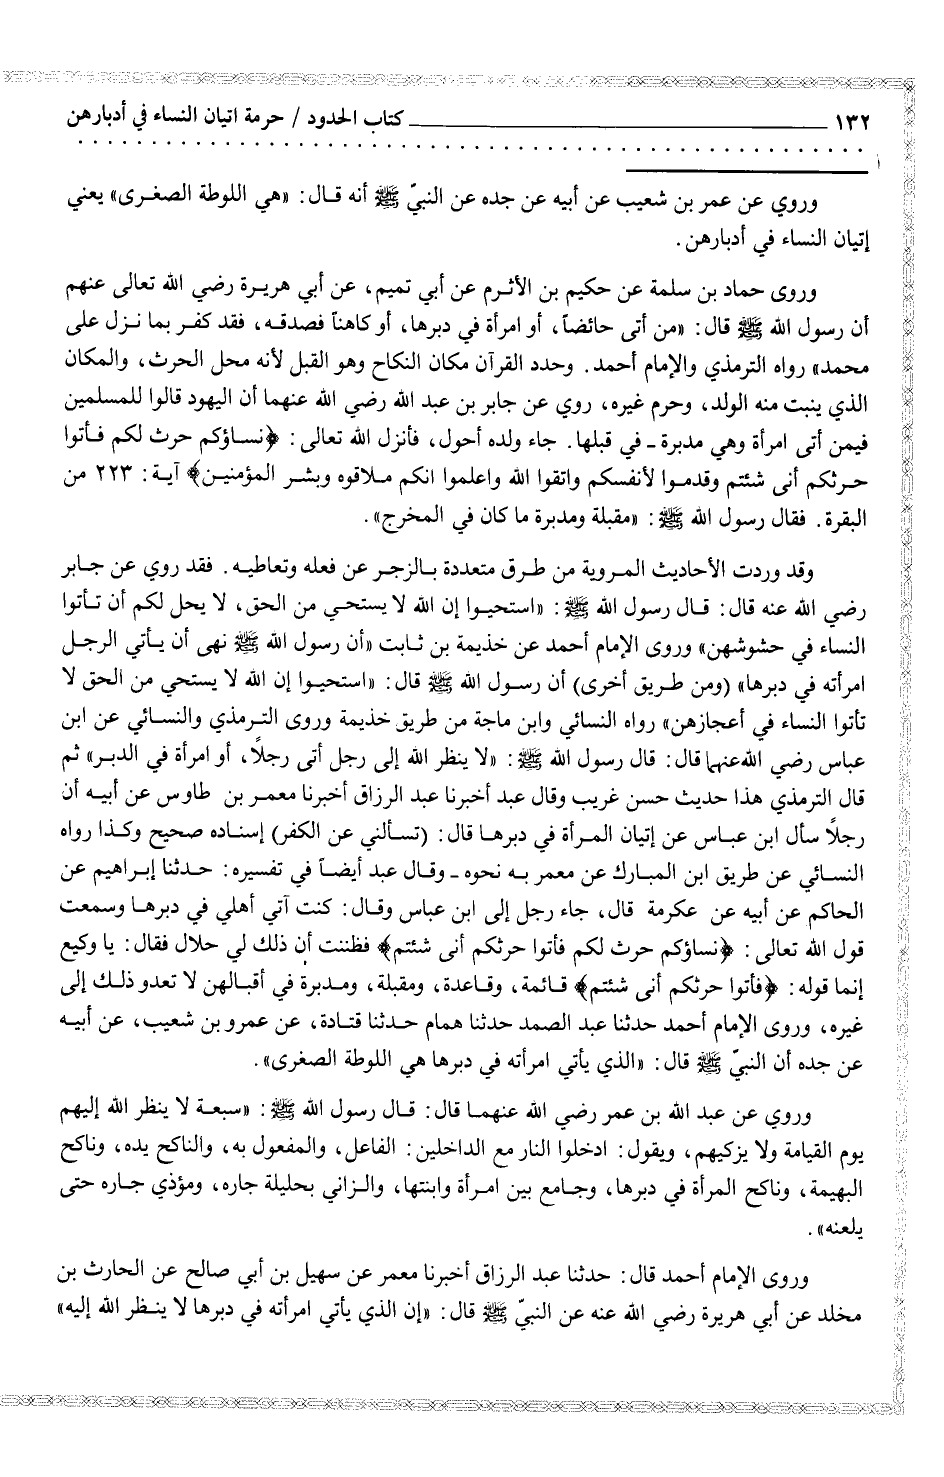 ١٣٢ ــــــــــــ كتاب الحدود / حرمة اتيان النساء في أدبارهن
وروي عن عمر بن شعيب عن أبيه عن جده عن النبيّ ﷺ أنه قال: «هي اللوطة الصغرى» يعني
إتيان النساء في أدبارهن.
وروى حماد بن سلمة عن حكيم بن الأثرم عن أبي تميم، عن أبي هريرة رضي الله تعالى عنهم
أن رسول الله ﷺ قال: «من أتى حائضاً، أو امرأة في دبرها، أو كاهناً فصدقه، فقد كفر بما نزل على
محمد» رواه الترمذي والإمام أحمد. وحدد القرآن مكان النكاح وهو القبل لأنه محل الحرث، والمكان
الذي ينبت منه الولد، وحرم غيره، روي عن جابر بن عبد الله رضي الله عنهما أن اليهود قالوا للمسلمين
فيمن أتى امرأة وهي مدبرة ـ في قبلها. جاء ولده أحول، فأنزل الله تعالى: ﴿نساؤكم حرث لكم فأتوا
حرثكم أنى شئتم وقدموا لأنفسكم واتقوا الله واعلموا انكم ملاقوه وبشر المؤمنين﴾ آية: ٢٢٣ من
البقرة. فقال رسول الله ﷺ: «مقبلة ومدبرة ما كان في المخرج».
وقد وردت الأحاديث المروية من طرق متعددة بالزجر عن فعله وتعاطيه. فقد روي عن جابر
رضي الله عنه قال: قال رسول الله ﷺ: «استحيوا إن الله لا يستحي من الحق، لا يحل لكم أن تأتوا
النساء في حشوشهن» وروى الإمام أحمد عن خذيمة بن ثابت «أن رسول الله ﷺ نهى أن يأتي الرجل
امرأته في دبرها» (ومن طريق أخرى) أن رسول الله ﷺ قال: «استحيوا إن الله لا يستحي من الحق لا
تأتوا النساء في أعجازهن» رواه النسائي وابن ماجة من طريق خذيمة وروى الترمذي والنسائي عن ابن
عباس رضي الله عنهما قال: قال رسول الله ﷺ: «لا ينظر الله إلى رجل أتى رجلاً، أو امرأة في الدبر» ثم
قال الترمذي هذا حديث حسن غريب وقال عبد أخبرنا عبد الرزاق أخبرنا معمر بن طاوس عن أبيه أن
رجلاً سأل ابن عباس عن إتيان المرأة في دبرها قال: (تسألني عن الكفر) إسناده صحيح وكذا رواه
النسائي عن طريق ابن المبارك عن معمر به نحوه ـ وقال عبد أيضاً في تفسيره: حدثنا إبراهيم عن
الحاكم عن أبيه عن عكرمة قال، جاء رجل إلى ابن عباس وقال: كنت آتي أهلي في دبرها وسمعت
قول الله تعالى: ﴿نساؤكم حرث لكم فأتوا حرثكم أنى شئتم﴾ فظننت أن ذلك لي حلال فقال: يا وكيع
إنما قوله: ﴿فأتوا حرثكم أنى شئتم﴾ قائمة، وقاعدة، ومقبلة، ومدبرة في أقبالهن لا تعدو ذلك إلى
غيره، وروى الإمام أحمد حدثنا عبد الصمد حدثنا همام حدثنا قتادة، عن عمرو بن شعيب، عن أبيه
عن جده أن النبيّ ﷺ قال: «الذي يأتي امرأته في دبرها هي اللوطة الصغرى».
وروي عن عبد الله بن عمر رضي الله عنهما قال: قال رسول الله ﷺ: «سبعة لا ينظر الله إليهم
يوم القيامة ولا يزكيهم، ويقول: ادخلوا النار مع الداخلين: الفاعل، والمفعول به، والناكح يده، وناكح
البهيمة، وناكح المرأة في دبرها، وجامع بين امرأة وابنتها، والزاني بحليلة جاره، ومؤذي جاره حتى
يلعنه».
وروى الإمام أحمد قال: حدثنا عبد الرزاق أخبرنا معمر عن سهيل بن أبي صالح عن الحارث بن
مخلد عن أبي هريرة رضي الله عنه عن النبيّ ﷺ قال: «إن الذي يأتي امرأته في دبرها لا ينظر الله إليه»